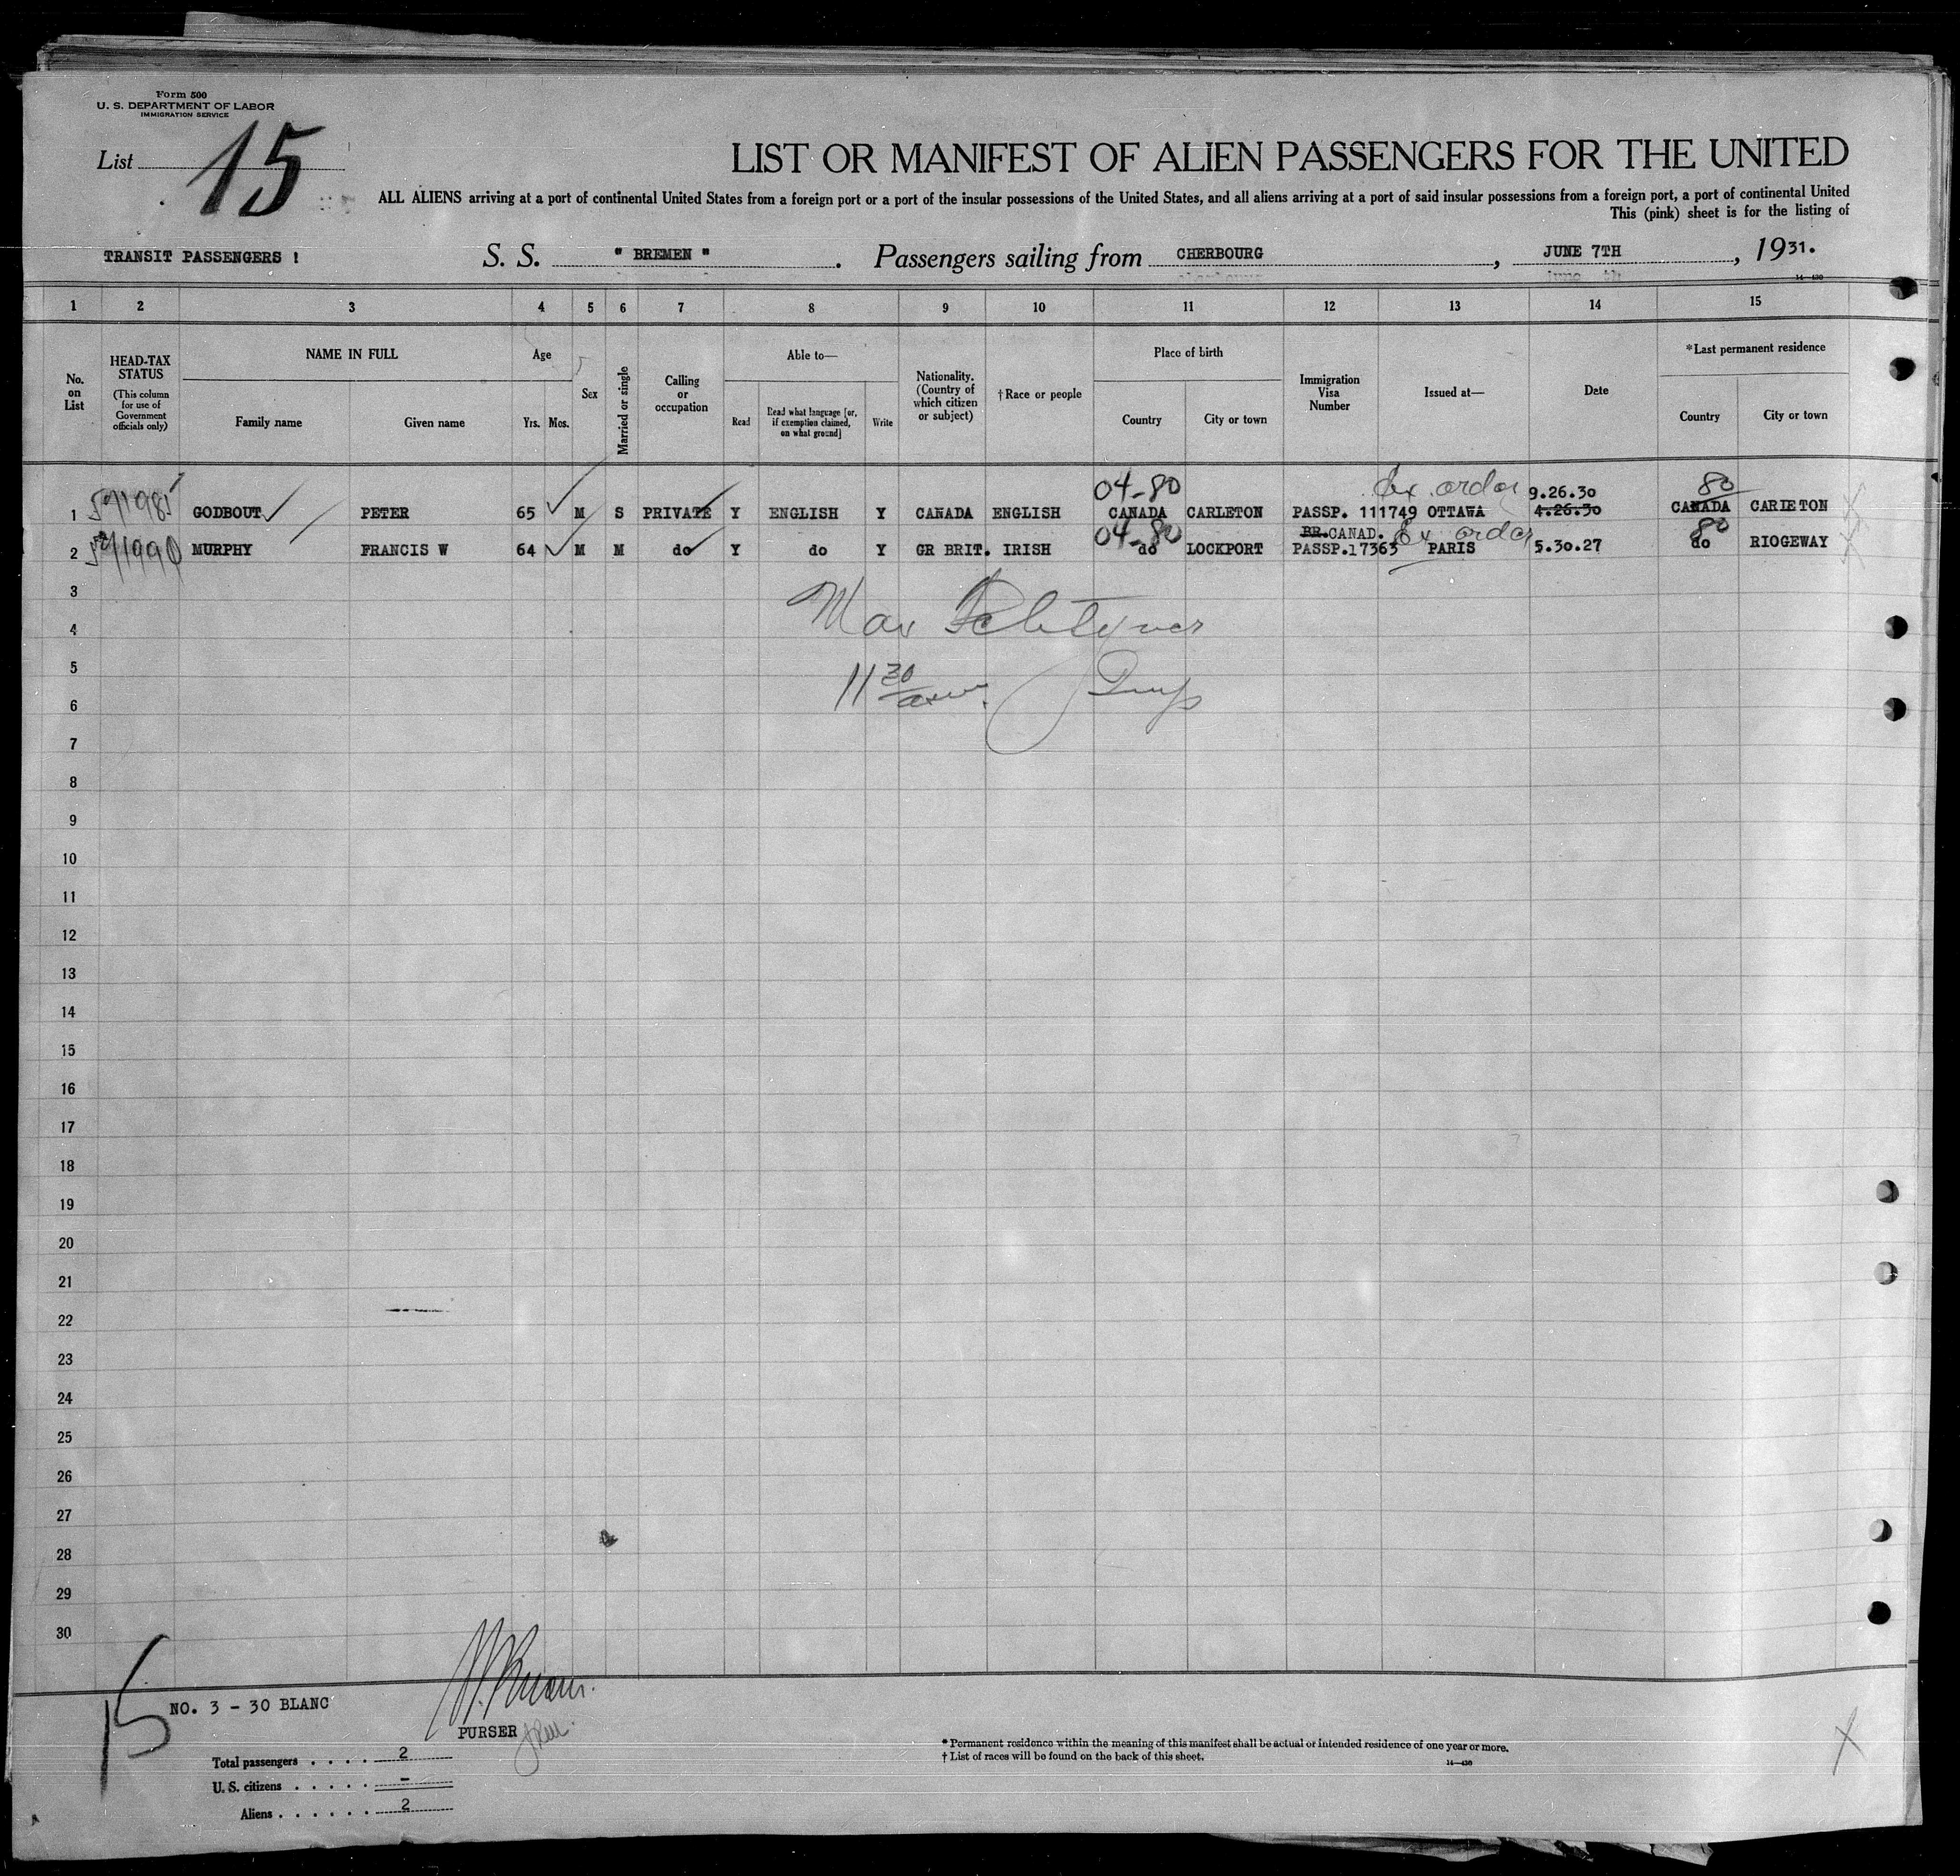 Form 500
U. S. DEPARTMENT OF LABOR
IMMIGRATION SERVICE
List 15
LIST OR MANIFEST OF ALIEN PASSENGERS FOR THE UNITED
ALL ALIENS arriving at a port of continental United States from a foreign port or a port of the insular possessions of the United States, and all aliens arriving at a port of said insular possessions from a foreign port, a port of continental United
This (pink) sheet is for the listing of
TRANSIT PASSENGERS ! S. S. " BREMEN ". Passengers sailing from CHERBOURG, JUNE 7TH, 1931.
14—430
1 2 3 4 5 6 7 8 9 10 11 12 13 14 15
No. on List
HEAD-TAX STATUS
(This column for use of Government officials only)
NAME IN FULL
Family name Given name
Age
Yrs. Mos.
Sex
Married or single
Calling or occupation
Able to—
Read Read what language [or, if exemption claimed, on what ground] Write
Nationality. (Country of which citizen or subject)
†Race or people
Place of birth
Country City or town
Immigration Visa Number
Issued at—
Date
*Last permanent residence
Country City or town
04-80 Ex order 9.26.30 80
1 GODBOUT PETER 65 M S PRIVATE Y ENGLISH Y CANADA ENGLISH CANADA CARLETON PASSP. 111749 OTTAWA 4.26.30 CANADA CARIETON
04-80 BR.CANAD. Ex order 80
2 MURPHY FRANCIS W 64 M M do Y do Y GR BRIT. IRISH do LOCKPORT PASSP.17363 PARIS 5.30.27 do RIOGEWAY
3
4
5
11 30
6
7
8
9
10
11
12
13
14
15
16
17
18
19
20
21
22
23
24
25
26
27
28
29
30
15
NO. 3 - 30 BLANC
PURSER
Total passengers . . . . 2
U. S. citizens . . . . . -
Aliens . . . . . . 2
* Permanent residence within the meaning of this manifest shall be actual or intended residence of one year or more.
† List of races will be found on the back of this sheet.
14—430
X